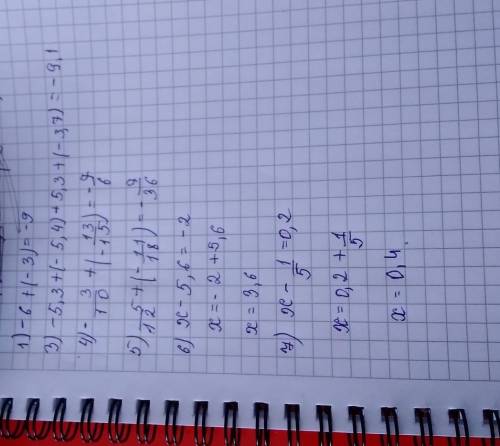 1) -6+(-3)=-9
3) -5,3+(-5,4)+5,3+(-3,7)=-9,1
4) -3/10+(-13/15)=-7/6
5) 5/12+(-11/18)=-7/36
6) x-5,6=-2
x=-2+5,6
x=3,6
7) x-1/5=0,2
x=0,2+1/5
x=0,4.